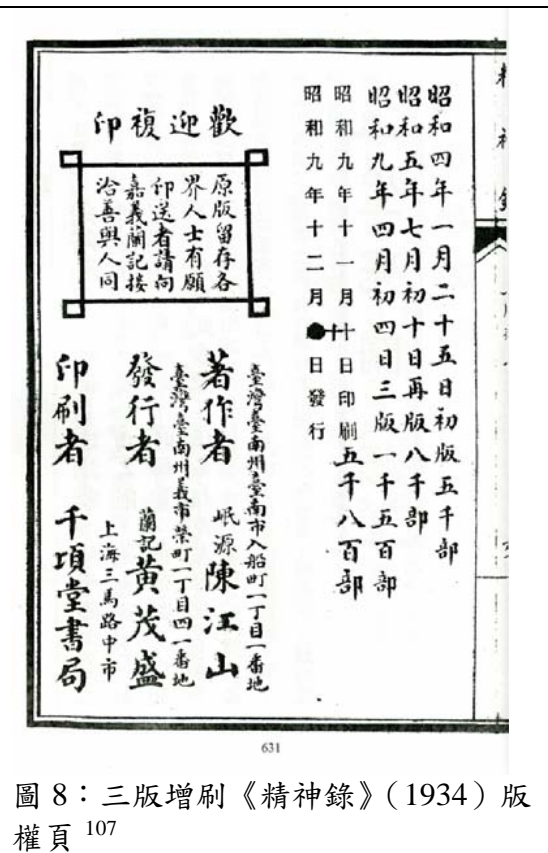 精神錄
昭和四年一月二十五日初版五千部
昭和五年七月初十日再版八千部
昭和九年四月初四日三版一千五百部
昭和九年十一月十日印刷五千八百部
昭和九年十二月十日發行
歡迎複印
原版留存各
界人士有願
印送者請向
嘉義蘭記接
洽善與人同
臺灣臺南州臺南市入船町一丁目一番地
著作者 岷源陳江山
臺灣臺南州義市榮町一丁目四一番地
發行者 蘭記黃茂盛
上海三馬路中市
印刷者 千頃堂書局
631
圖 8：三版增刷《精神錄》（1934）版
權頁 107